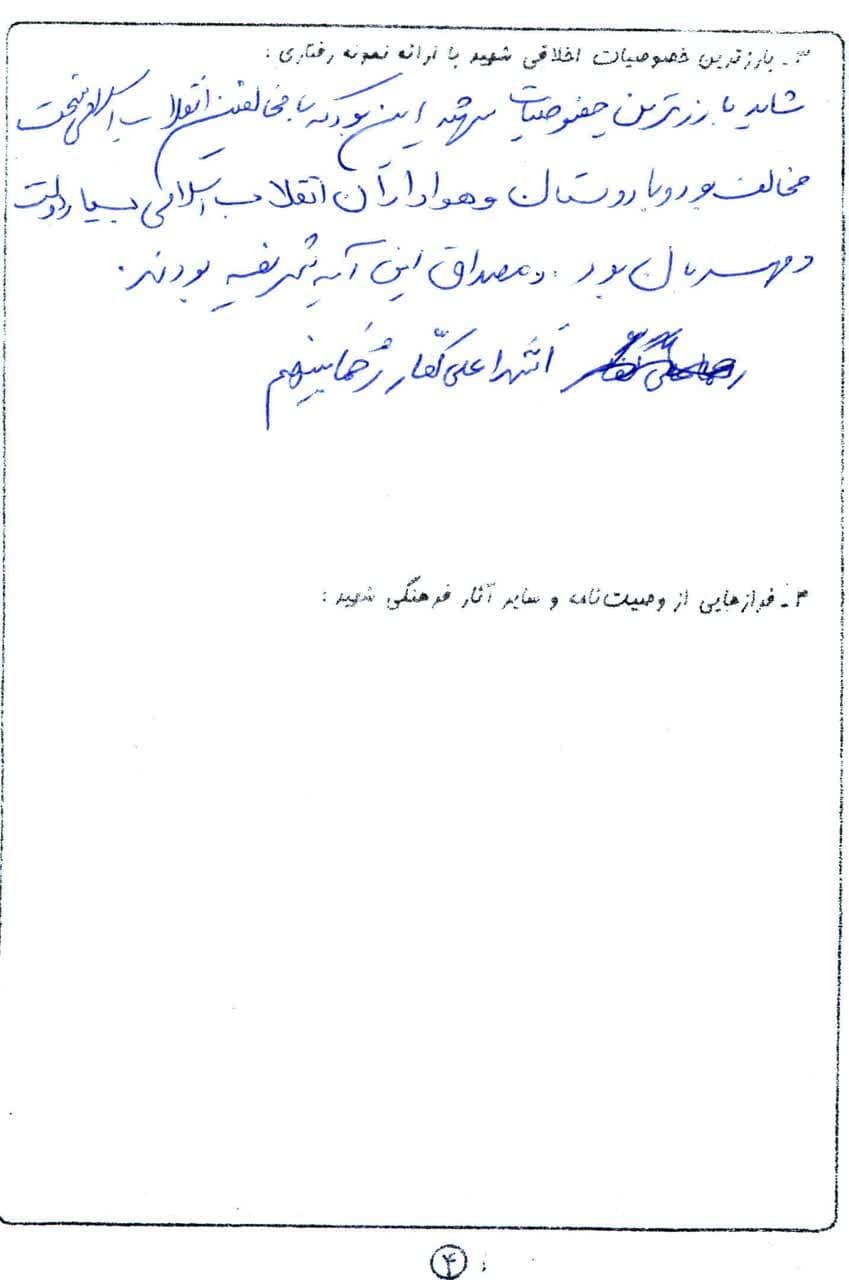 ۳ـ بارزترین خصوصیات اخلاقی شهید با ارائه نمونه رفتاری :
شاید بارزترین خصوصیات شهید این بود که با مخالفین انقلاب اسلامی سخت
مخالف بود و با دوستان و هواداران انقلاب اسلامی بسیار دوست
و مهربان بود . و مصداق این آیه شریفه بودند .
اَشدا علی کفّار رُحَما بینهم
۴ـ فرازهایی از وصیت‌نامه و سایر آثار فرهنگی شهید :
۴